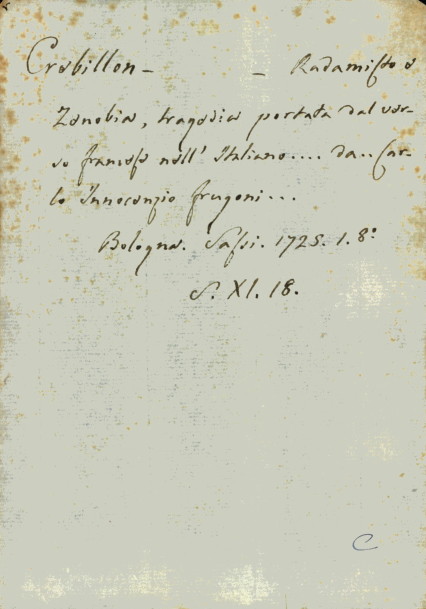 Crebillon — — Radamisto e
Zenobia, tragedia portata dal ver-
so francese nell' Italiano.... da.. Car-
lo Innocenzio frugoni...
Bologna. Sassi. 1725. 1. 8°
S. XI. 18.
C